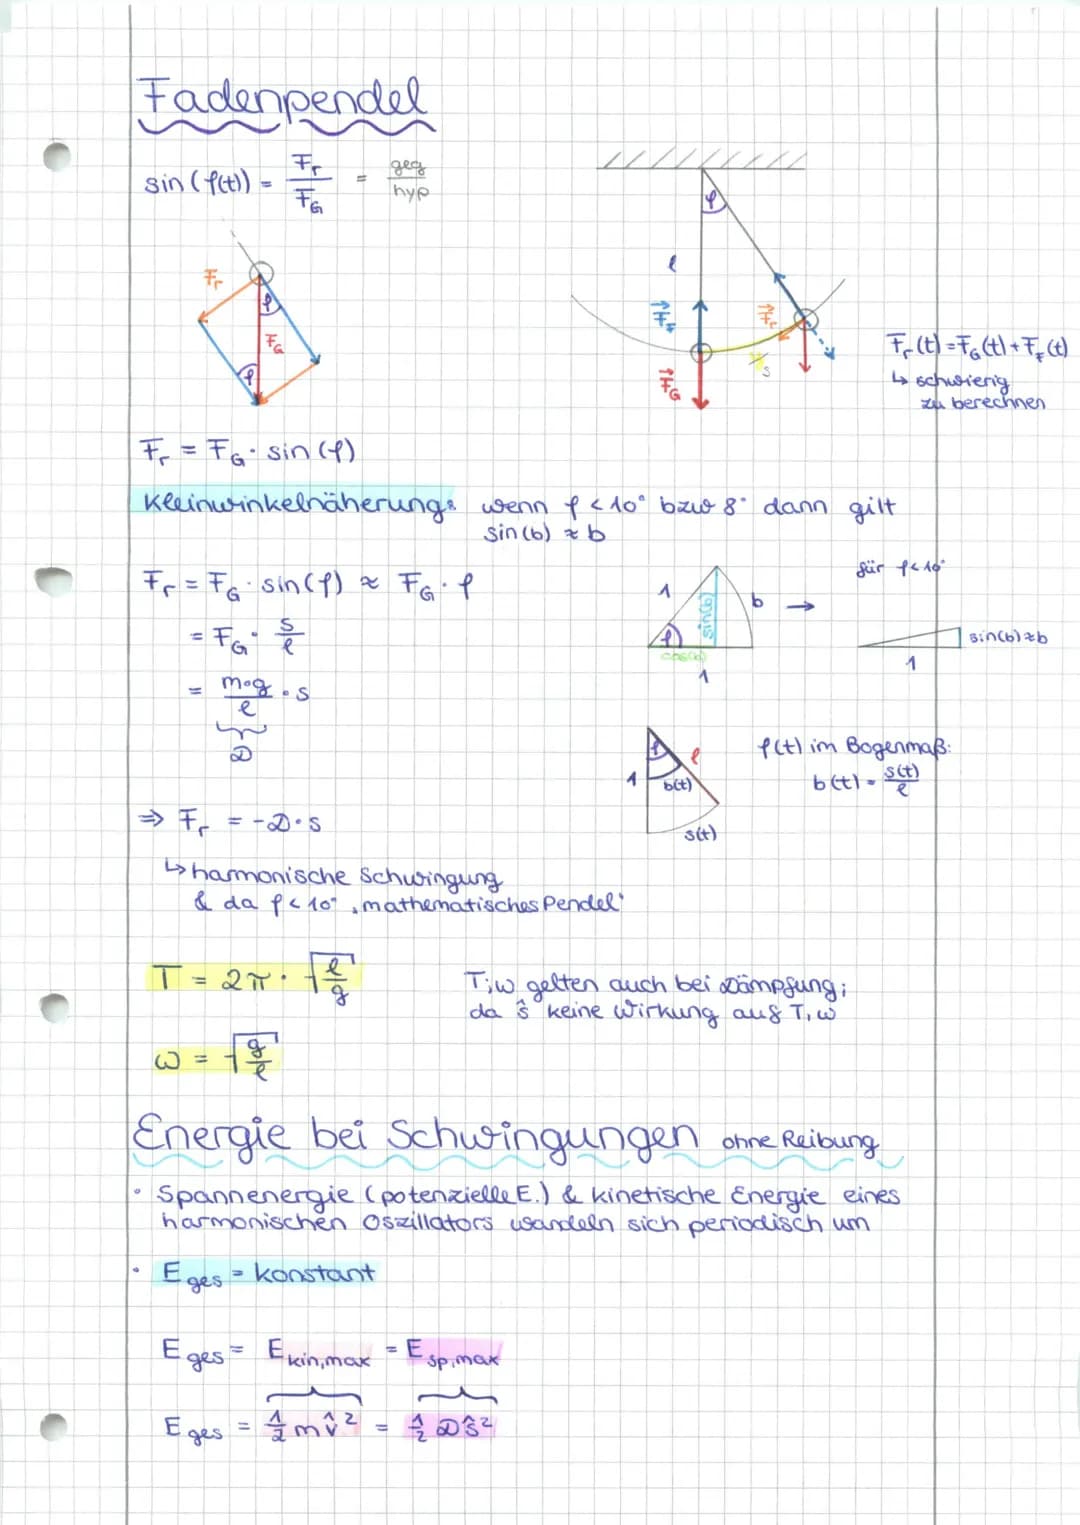 Fadenpendel
sin(φ(t)) = F_r / F_G = geg / hyp
φ
l
F_r
φ
F_G
φ
F_F
F_r
s
F_G
F_r(t) = F_G(t) + F_F(t)
↳ schwierig
zu berechnen
F_r = F_G · sin(φ)
Kleinwinkelnäherung: wenn φ < 10° bzw 8° dann gilt
sin(b) ≈ b
F_r = F_G · sin(φ) ≈ F_G · φ
= F_G · s/l
= m·g/l · s
D
1
φ
sin(b)
cos(b)
b →
1
für φ < 10°
sin(b) ≈ b
1
φ
l
1
b(t)
s(t)
φ(t) im Bogenmaß:
b(t) = s(t)/l
⇒ F_r = -D·s
↳ harmonische Schwingung
& da φ < 10° „mathematisches Pendel"
T = 2π · √(l/g)
T; ω gelten auch bei Dämpfung;
da ŝ keine Wirkung auf T, ω
ω = √(g/l)
Energie bei Schwingungen ohne Reibung
• Spannenergie (potenzielle E.) & kinetische Energie eines
harmonischen Oszillators wandeln sich periodisch um
• E_ges = konstant
E_ges = E_kin,max = E_sp,max
E_ges = ½ m v̂² = ½ D ŝ²